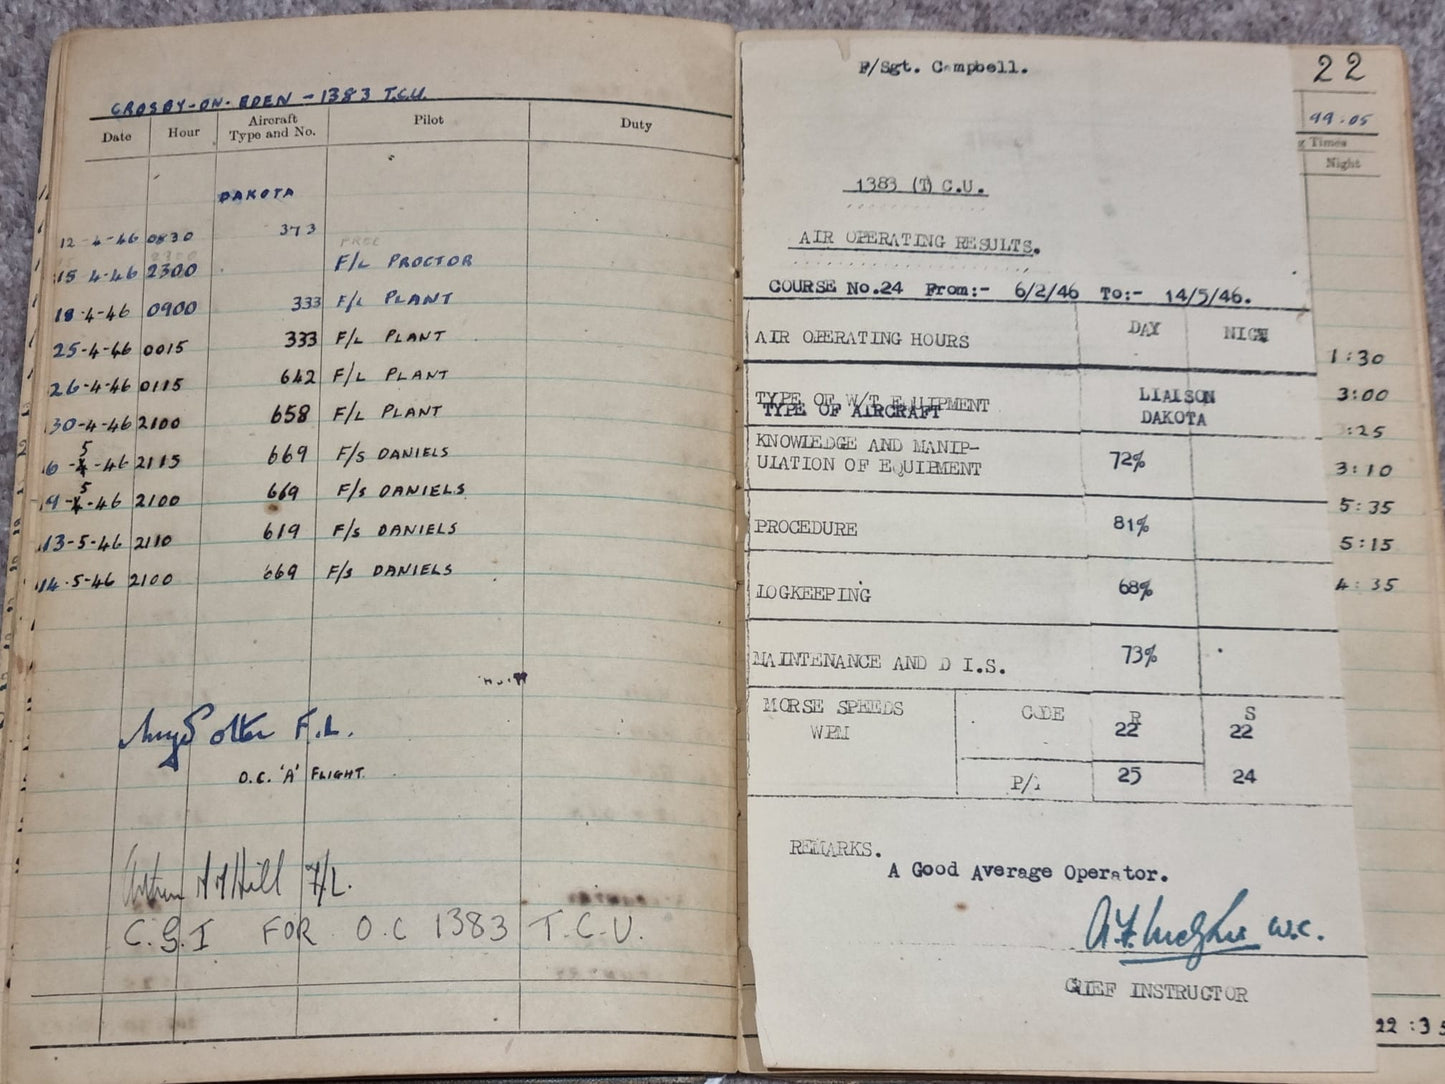 CROSBY-ON-EDEN - 1383 T.C.U.
Date Hour Aircraft Type and No. Pilot Duty
DAKOTA
12-4-46 0830 373
15-4-46 2300 F/L PROCTOR
18-4-46 0900 333 F/L PLANT
25-4-46 0015 333 F/L PLANT
26-4-46 0115 642 F/L PLANT
30-4-46 2100 658 F/L PLANT
6-5-46 2115 669 F/S DANIELS
9-5-46 2100 669 F/S DANIELS
13-5-46 2110 619 F/S DANIELS
14.5-46 2100 669 F/S DANIELS
F.L.
O.C. 'A' FLIGHT.
Hill F/L.
C.G.I FOR O.C 1383 T.C.U.
F/Sgt. Campbell.
1383 (T) C.U.
AIR OPERATING RESULTS.
COURSE No.24 From:- 6/2/46 To:- 14/5/46.
AIR OPERATING HOURS DAY NIGH
TYPE OF W/T EQUIPMENT LIAISON
TYPE OF AIRCRAFT DAKOTA
KNOWLEDGE AND MANIP-
ULATION OF EQUIPMENT 72%
PROCEDURE 81%
LOGKEEPING 68%
MAINTENANCE AND D I.S. 73%
MORSE SPEEDS CODE R S
WPM 22 22
P/L 25 24
REMARKS.
A Good Average Operator.
W.C.
CHIEF INSTRUCTOR
22
99.05
Times
Night
1:30
3:00
:25
3:10
5:35
5:15
4:35
22:35